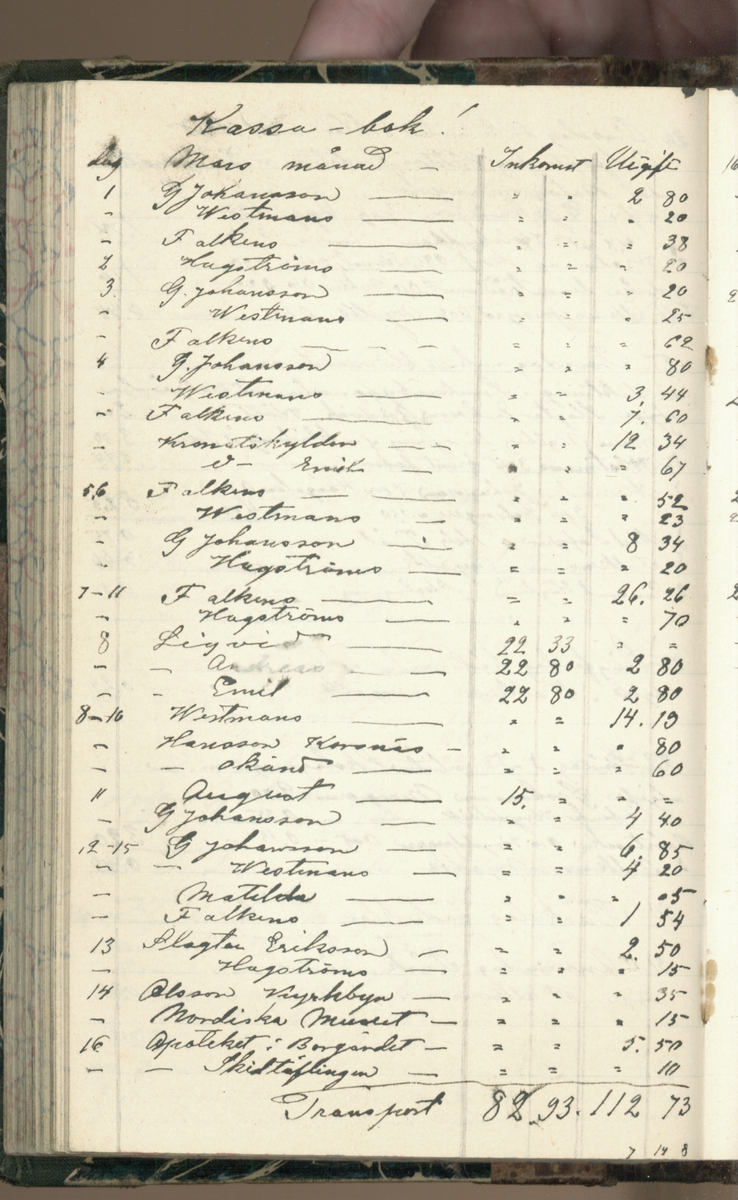 Kassa-bok!
dag Mars månad — Inkomst Utgift
1 G Johansson — " " 2 80
- Westmans — " " " 20
- Falkens — " " " 38
2 Hagströms — " " " 20
3. G. Johansson — " " " 20
- Westmans — " " " 25
- Falkens — " " " 62
4 G. Johansson " " " 80
- Westmans — " " 3. 44
- Falkens — " " 7. 60
- Kronotskylden — " " 12 34
d- Emil " " " 67
5,6 Falkens — " " " 52
- Westmans — " " " 23
- G Johansson — " " 8 34
- Hagströms — " " " 20
7-11 Falkens — " " 26. 26
- Hagströms — " " " 70
8 Liqvid — 22 33 " "
- - Andreas — 22 80 2 80
- - Emil — 22 80 2 80
8-10 Westmans — " " 14. 19
- Hansson Korsnäs — " " " 80
- - okänd — " " " 60
11 August — 15. " " "
- G Johansson — " " 4 40
12-15 G Johansson — " " 6. 85
- - Westmans — " " 4 20
- Matilda — " " " 05
- Falkens — " " 1 54
13 Slagtar Eriksson — " " 2. 50
- Hagströms — " " " 15
14 Olsson Kyrkbyn — " " " 35
- Nordiska Museet — " " " 15
16 Apoteket i Borgärdet — " " 5. 50
- - Skidtäflingen — " " " 10
Transport 82. 93. 112 73
7 14 8